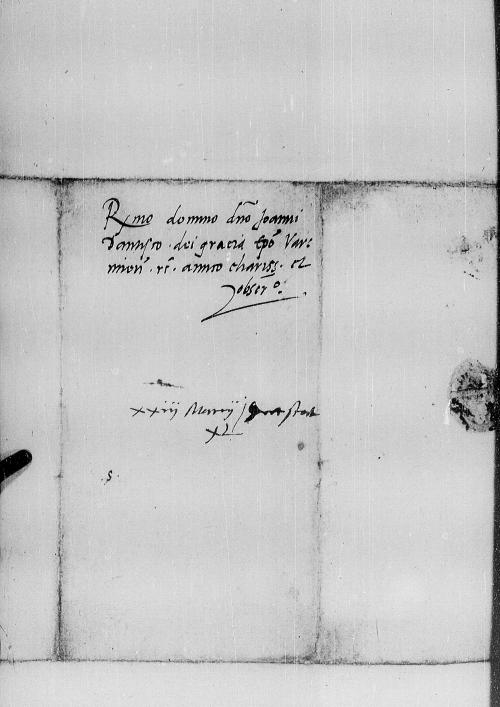 Rmo domino dno Joanni
Dantisco . dei gracia Epo Var=
mien . re . amico chariss . et
obser.o
xxiij Marcij
XL
.S.